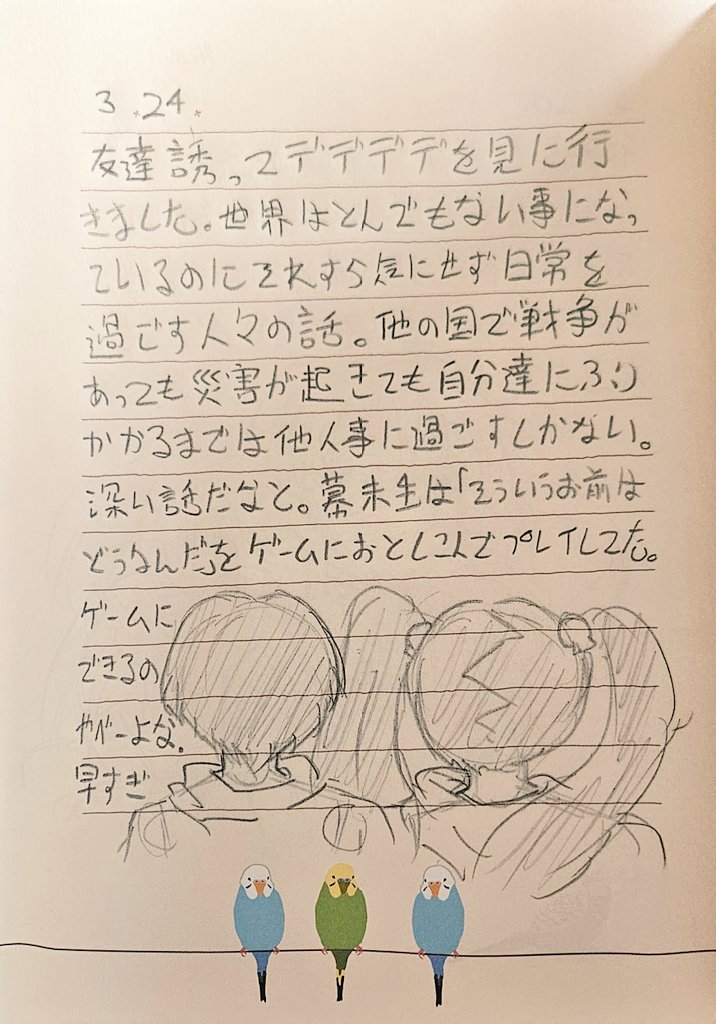 3.24.
友達誘ってデデデデを見に行
きました。世界はとんでもない事になっ
ているのにそれすら気にせず日常を
過ごす人々の話。他の国で戦争が
あっても災害が起きても自分達にふり
かかるまでは他人事に過ごすしかない。
深い話だなと。幕末生は「そういうお前は
どうなんだ」をゲームにおとしこんでプレイしてた。
ゲームに
できるの
やべーよな。
早すぎ